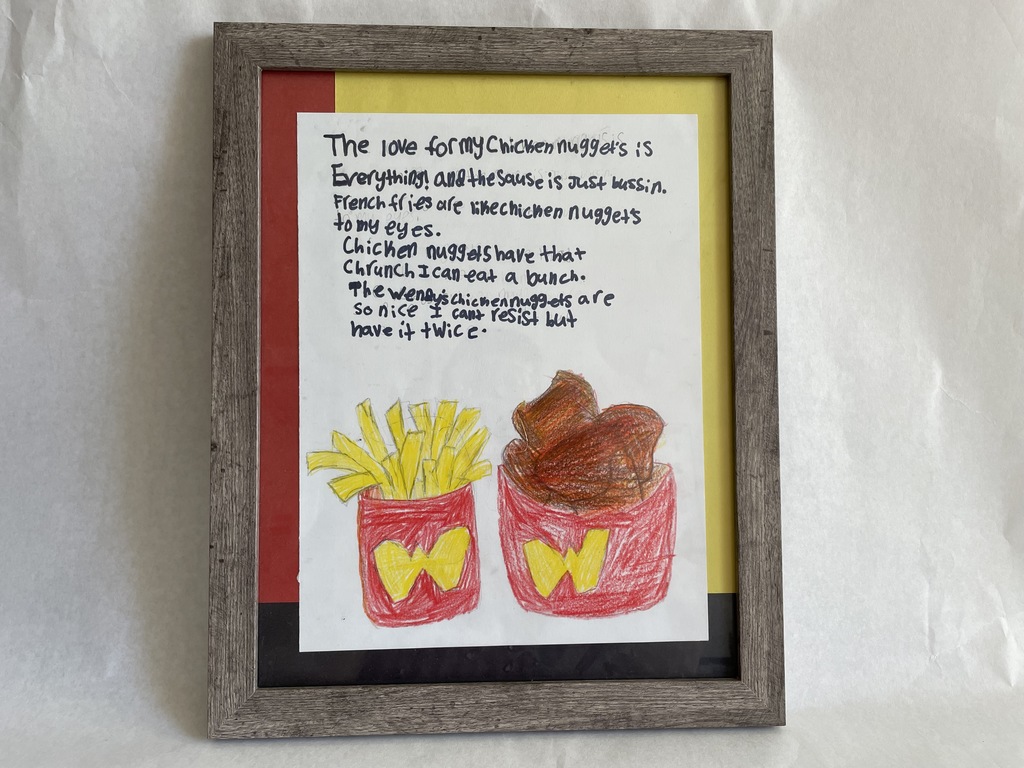 The love for my Chicken nuggets is
Everything! and the Sause is Just bussin.
French fries are like chicken nuggets
to my eyes.
Chicken nuggets have that
Chrunch I can eat a bunch.
The Wendy's chicken nuggets are
so nice I cant resist but
have it twice.
W W